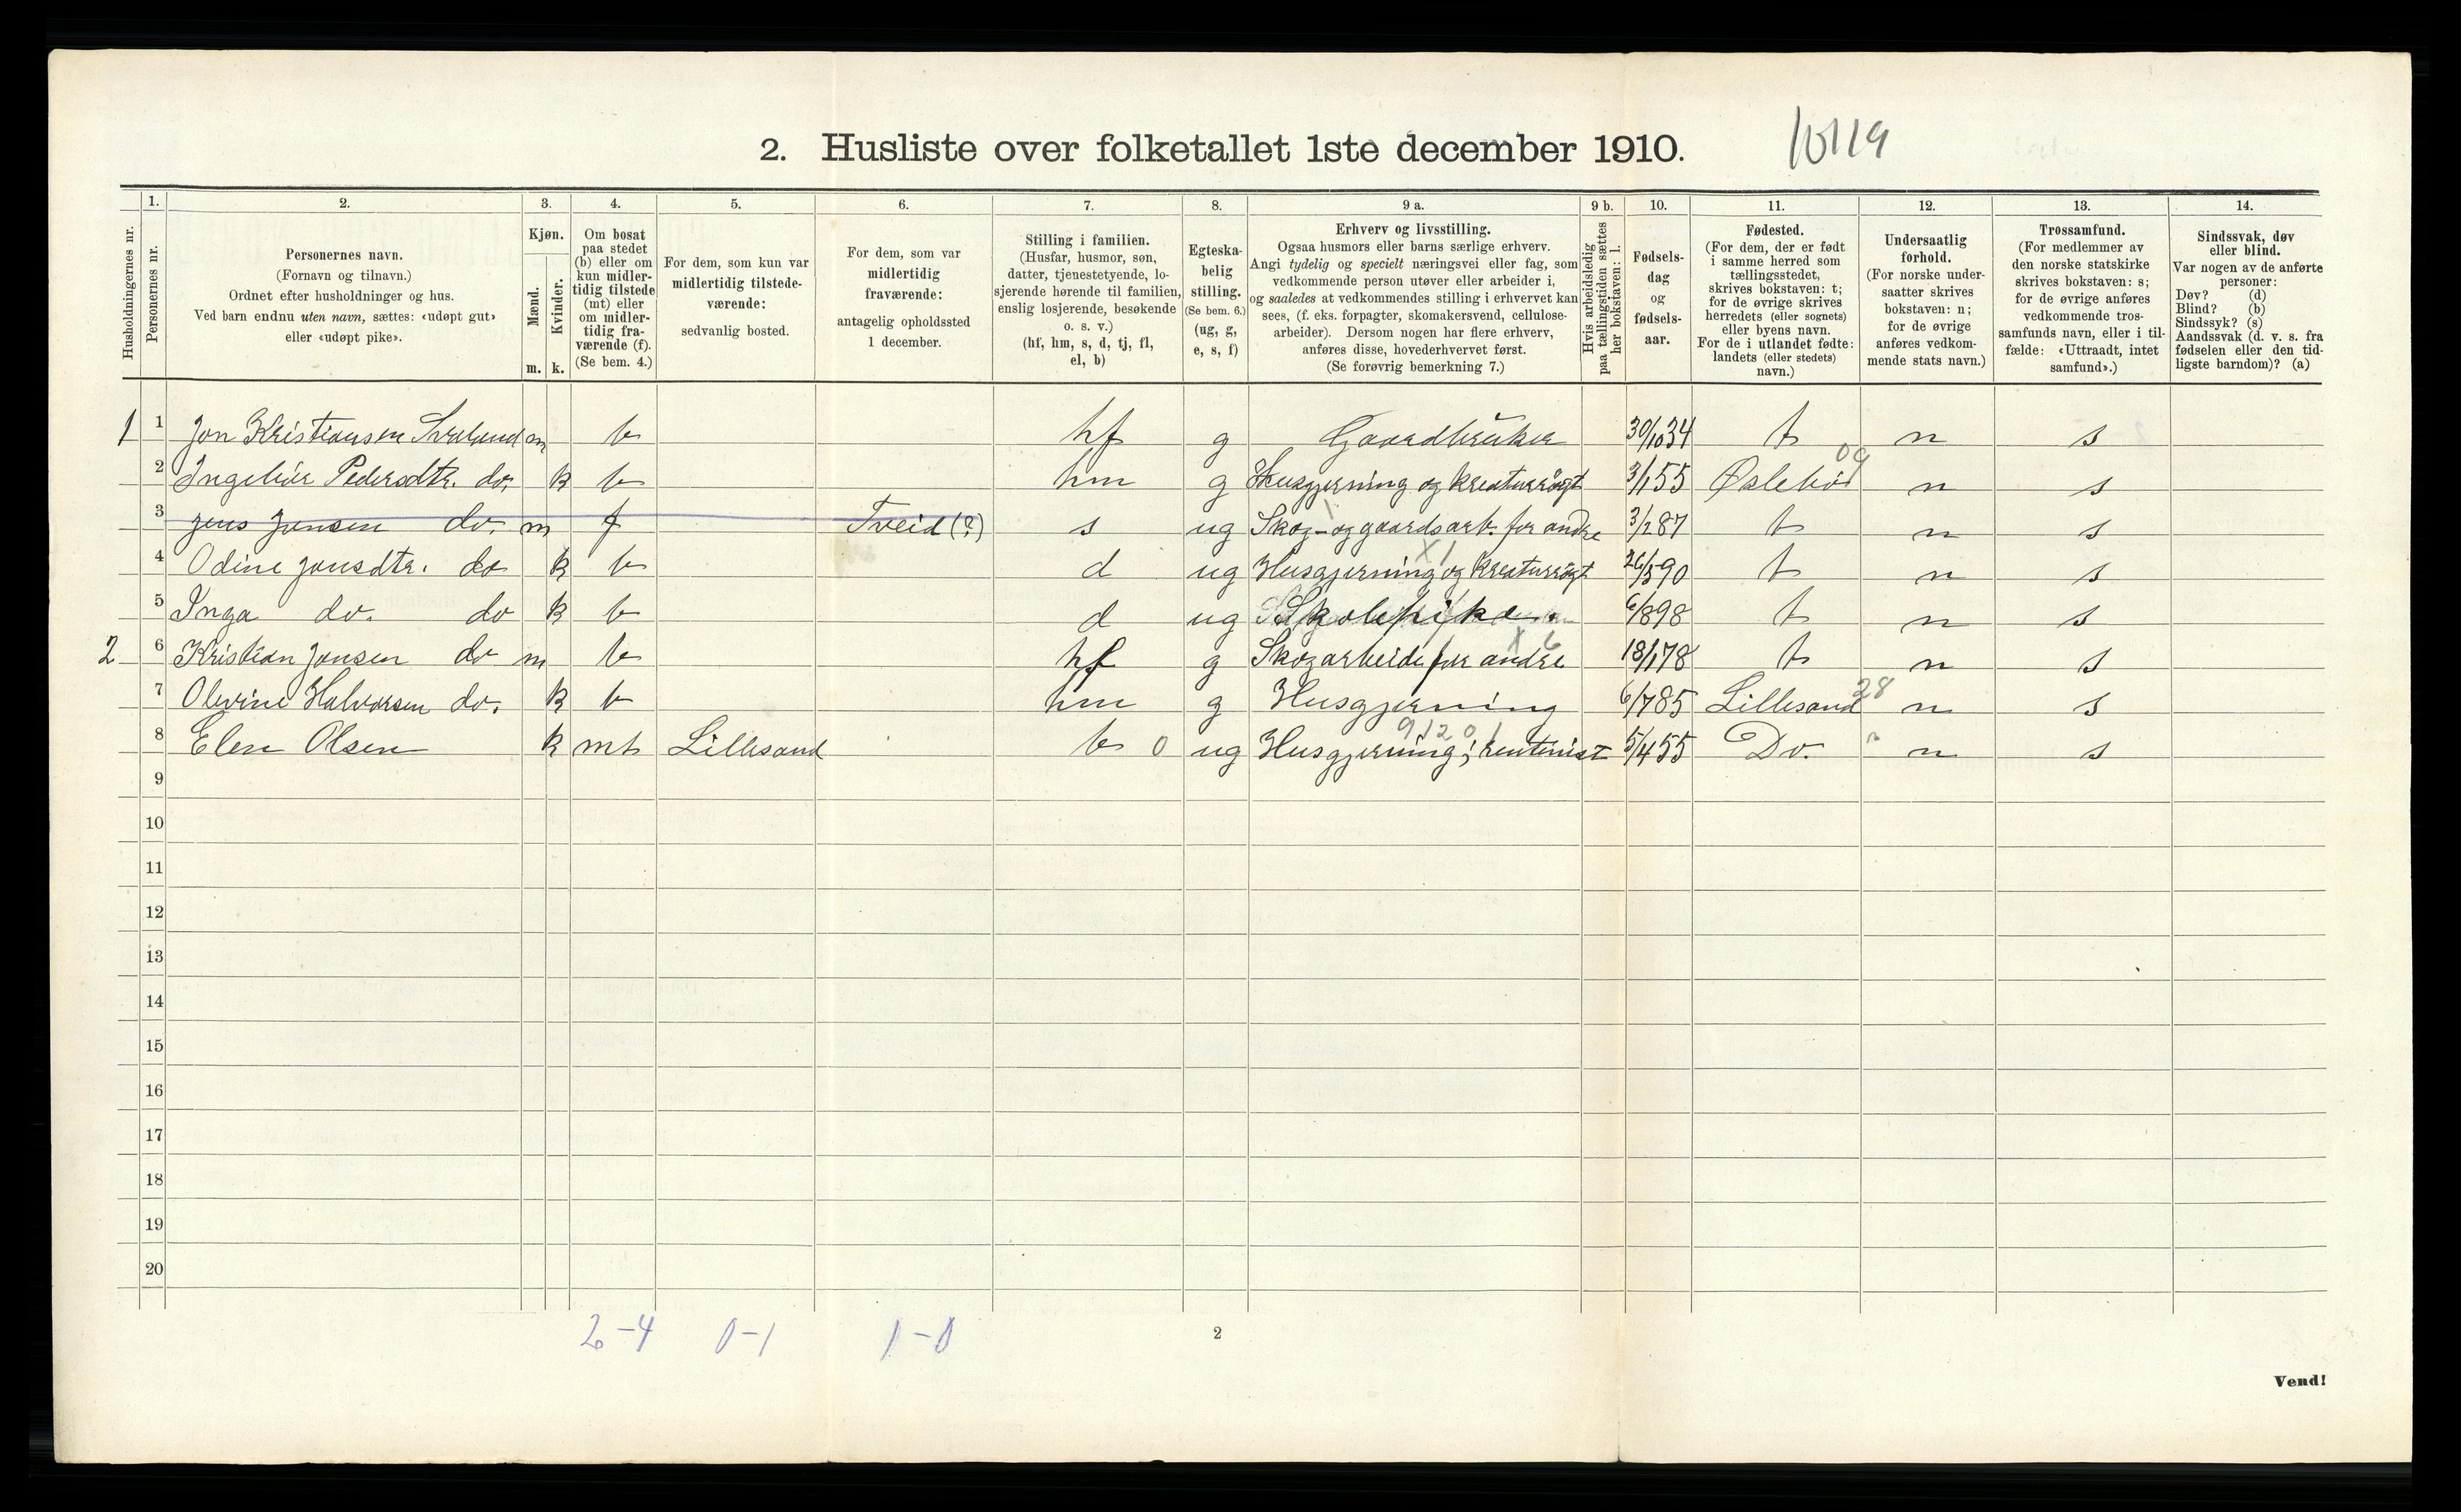 2. Husliste over folketallet 1ste december 1910.
10119
Husholdningernes nr.
1.
Personernes nr.
2.
Personernes navn.
(Fornavn og tilnavn.)
Ordnet efter husholdninger og hus.
Ved barn endnu uten navn, sættes: «udøpt gut»
eller «udøpt pike».
3.
Kjøn.
Mænd.
Kvinder.
m. k.
4.
Om bosat
paa stedet
(b) eller om
kun midler-
tidig tilstede
(mt) eller
om midler-
tidig fra-
værende (f).
(Se bem. 4.)
5.
For dem, som kun var
midlertidig tilstede-
værende:
sedvanlig bosted.
6.
For dem, som var
midlertidig
fraværende:
antagelig opholdssted
1 december.
7.
Stilling i familien.
(Husfar, husmor, søn,
datter, tjenestetyende, lo-
sjerende hørende til familien,
enslig losjerende, besøkende
o. s. v.)
(hf, hm, s, d, tj, fl,
el, b)
8.
Egteska-
belig
stilling.
(Se bem. 6.)
(ug, g,
e, s, f)
9 a.
Erhverv og livsstilling.
Ogsaa husmors eller barns særlige erhverv.
Angi tydelig og specielt næringsvei eller fag, som
vedkommende person utøver eller arbeider i,
og saaledes at vedkommendes stilling i erhvervet kan
sees, (f. eks. forpagter, skomakersvend, cellulose-
arbeider). Dersom nogen har flere erhverv,
anføres disse, hovederhvervet først.
(Se forøvrig bemerkning 7.)
9 b.
Hvis arbeidsledig
paa tællingstiden sættes
her bokstaven: l.
10.
Fødsels-
dag
og
fødsels-
aar.
11.
Fødested.
(For dem, der er født
i samme herred som
tællingsstedet,
skrives bokstaven: t;
for de øvrige skrives
herredets (eller sognets)
eller byens navn.
For de i utlandet fødte:
landets (eller stedets)
navn.)
12.
Undersaatlig
forhold.
(For norske under-
saatter skrives
bokstaven: n;
for de øvrige
anføres vedkom-
mende stats navn.)
13.
Trossamfund.
(For medlemmer av
den norske statskirke
skrives bokstaven: s;
for de øvrige anføres
vedkommende tros-
samfunds navn, eller i til-
fælde: «Uttraadt, intet
samfund».)
14.
Sindssvak, døv
eller blind.
Var nogen av de anførte
personer:
Døv? (d)
Blind? (b)
Sindssyk? (s)
Aandssvak (d. v. s. fra
fødselen eller den tid-
ligste barndom)? (a)
1 1 Jon Kristiansen m b hf g Gaardbruker 30/10 34 t n s
2 Pedersdtr. do. k b hm g Husgjerning og kreaturrögt 3/1 55 09 n s
3 Jens Jonsen do. m f Tveid (?) s ug Skog- og gaardsarb. for andre 3/2 87 t n s
4 Odine Jonsdtr. do k b d ug Husgjerning og kreaturrögt X1 26/5 90 t n s
5 Inga do. do k b d ug Skolepike. 6/8 98 t n s
2 6 Kristian Jonsen do m b hf g Skogarbeide for andre X 6 18/1 78 t n s
7 Olevine Halvorsen do. k b hm g Husgjerning 6/7 85 Lillesand 28 n s
8 Elen Olsen k mt Lillesand b 0 ug Husgjerning; rentenist 9120 1 5/4 55 Do. n s
9
10
11
12
13
14
15
16
17
18
19
20
2-4 0-1 1-0
2
Vend!